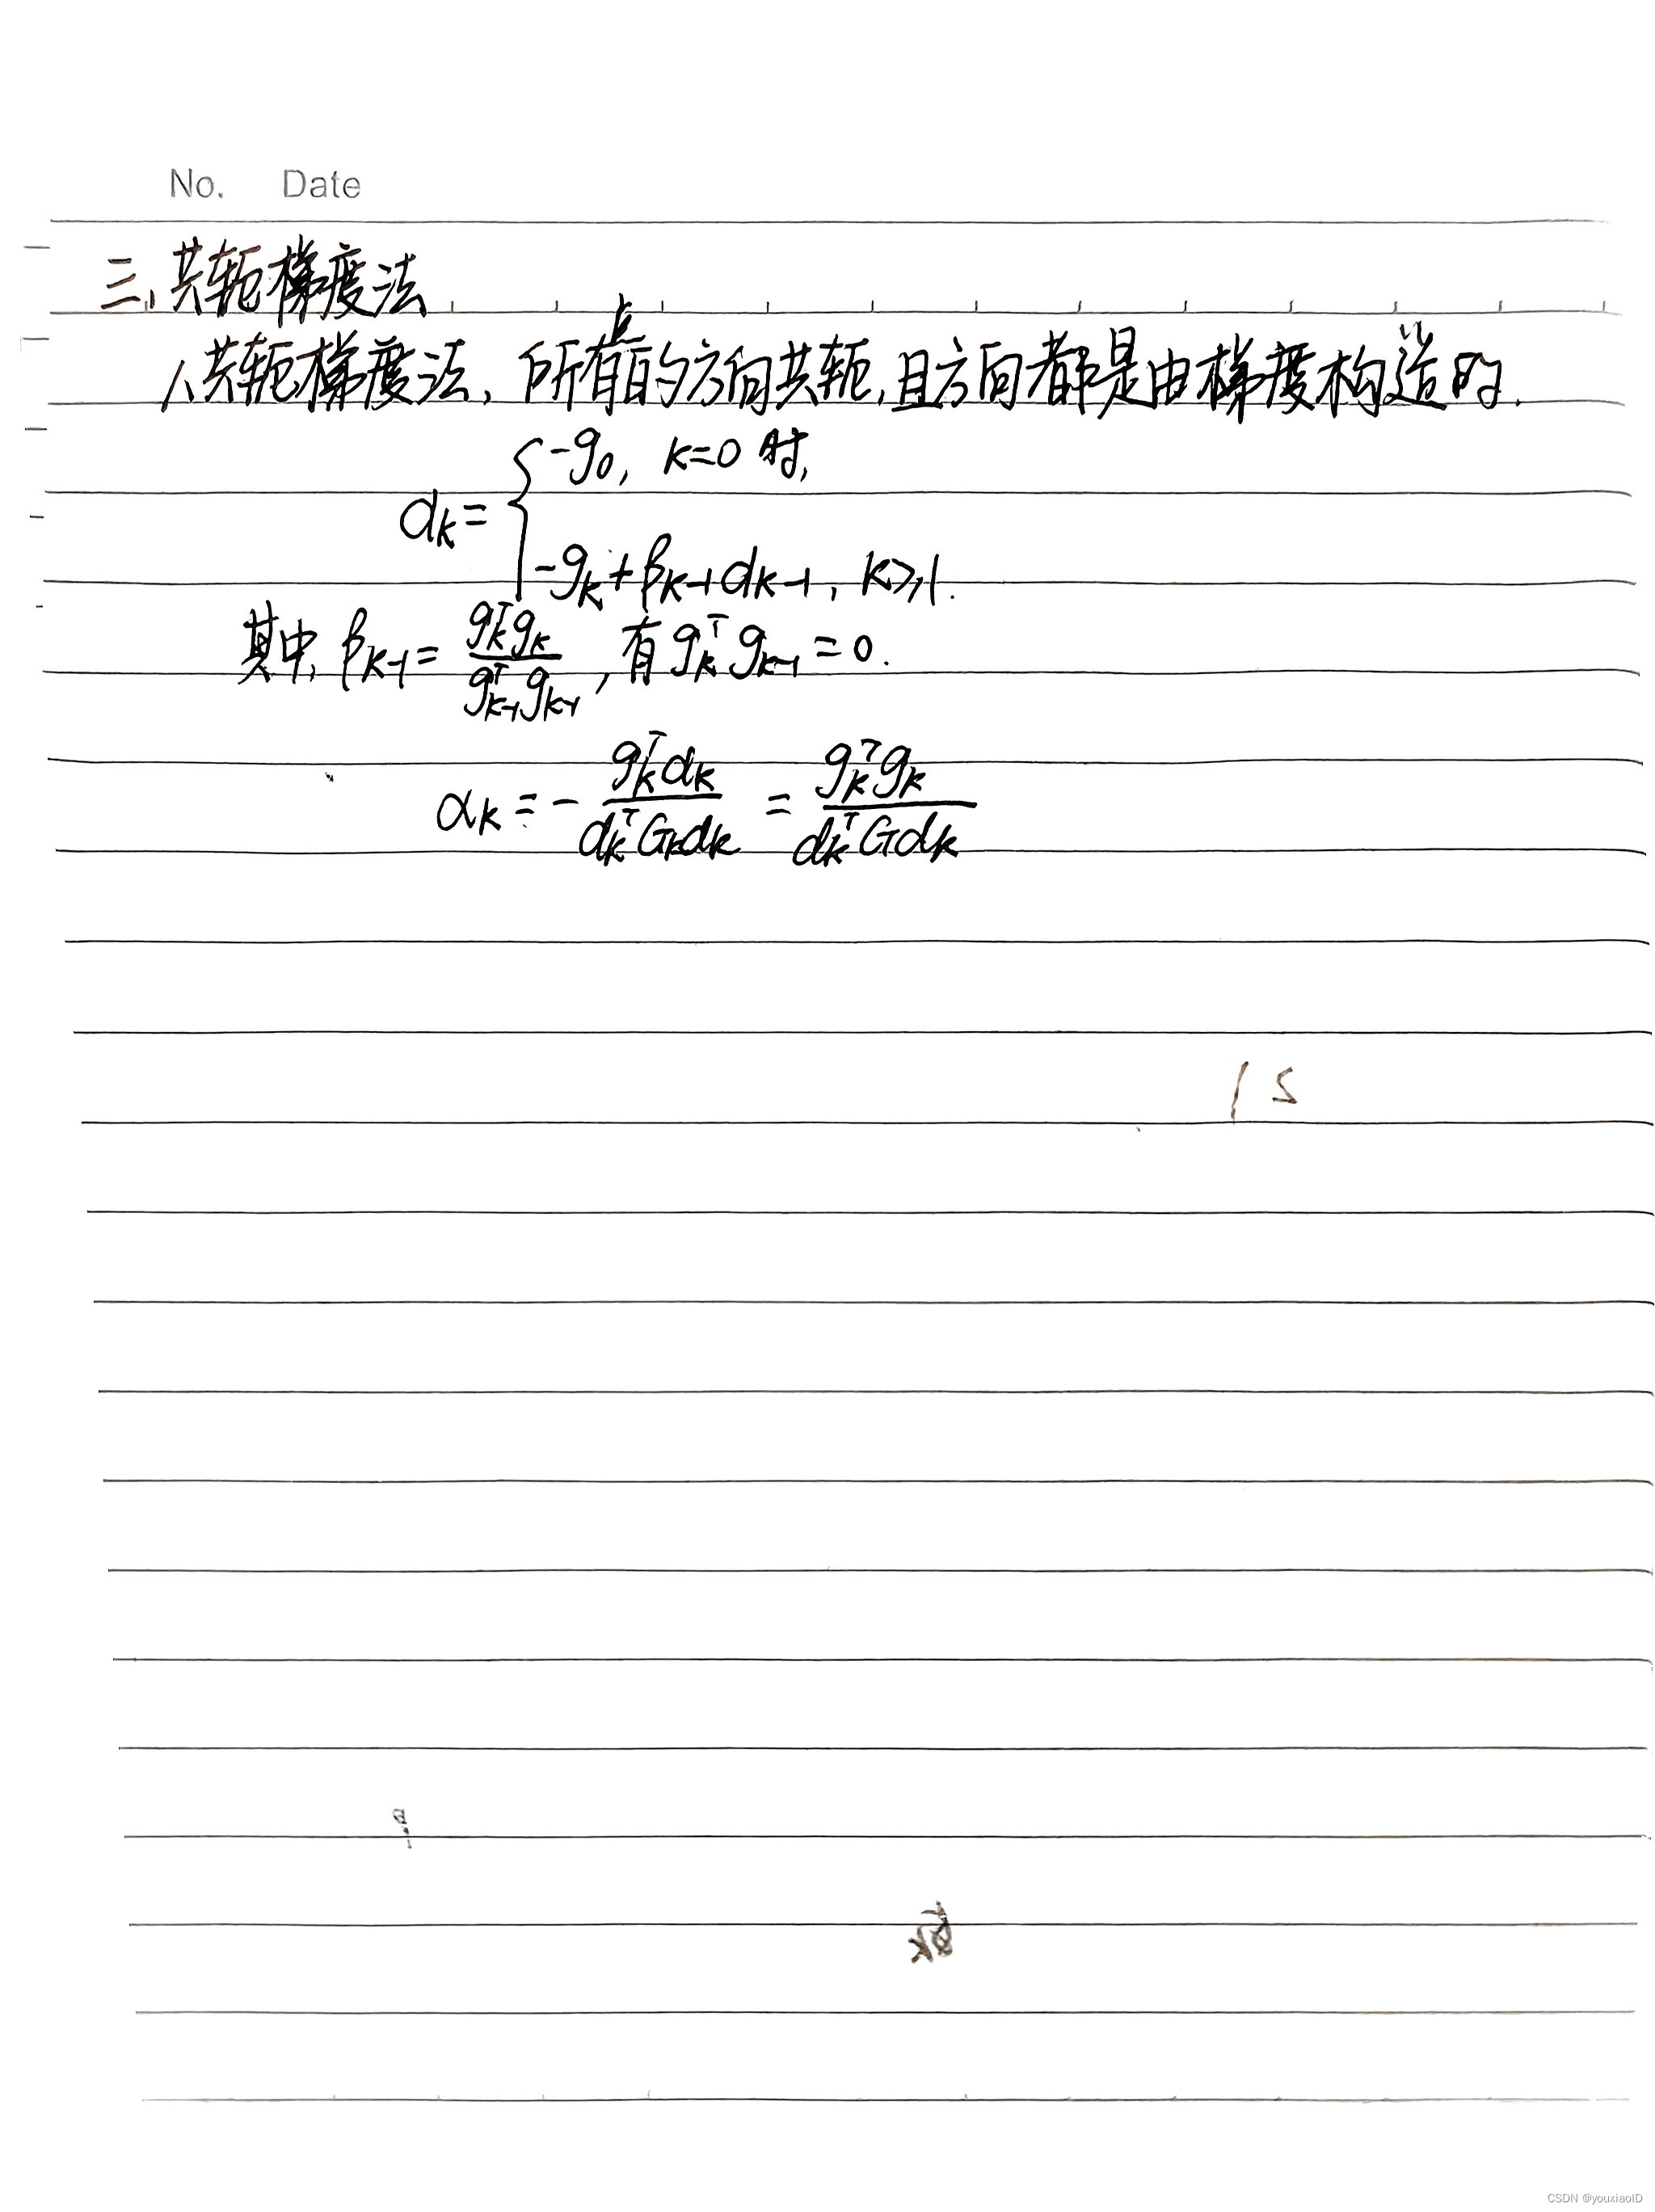 No. Date
三、共轭梯度法
1、共轭梯度法, 所有的方向共轭,且方向都是由梯度构造的.
d_k = { -g_0, k=0 时,
-g_k + β_{k-1} d_{k-1}, k≥1.
其中, β_{k-1} = \frac{g_k^T g_k}{g_{k-1}^T g_{k-1}}, 有 g_k^T g_{k-1} = 0.
α_k = - \frac{g_k^T d_k}{d_k^T G_k d_k} = \frac{g_k^T g_k}{d_k^T G d_k}
CSDN @youxiaoID